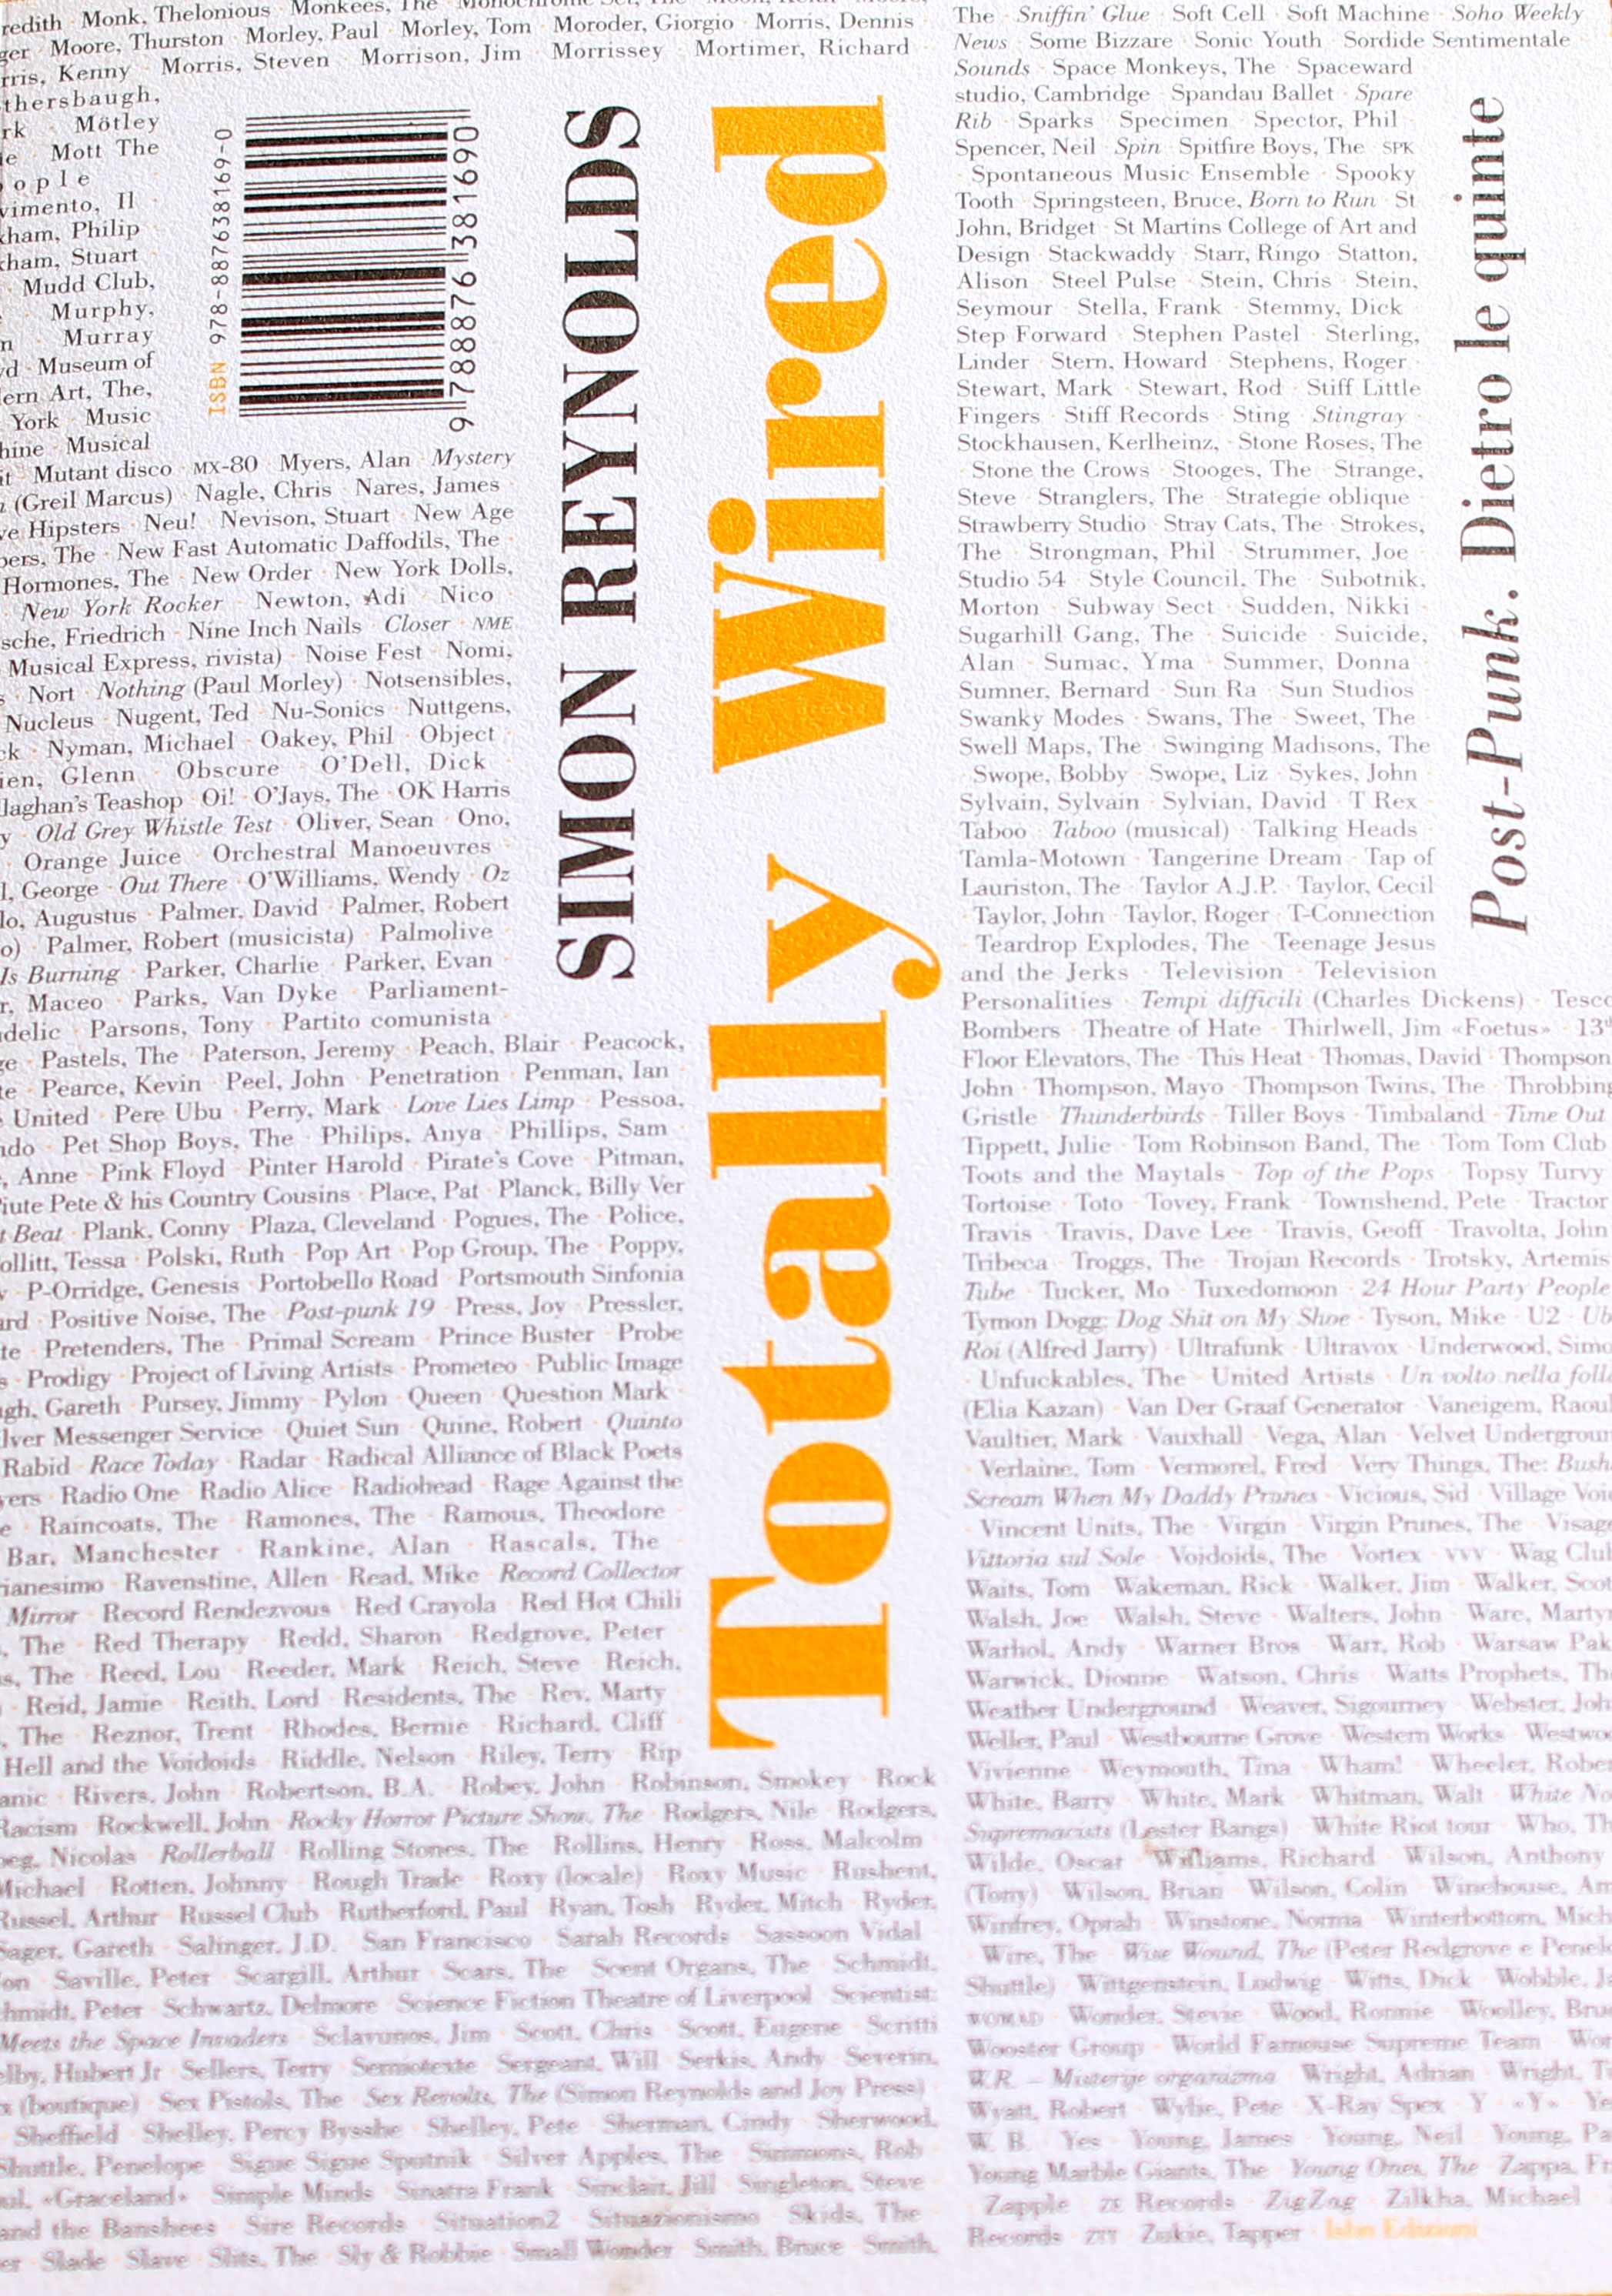 redith · Monk, Thelonious · Monkees, The
ger · Moore, Thurston · Morley, Paul · Morley, Tom · Moroder, Giorgio · Morris, Dennis
rris, Kenny · Morris, Steven · Morrison, Jim · Morrissey · Mortimer, Richard
thersbaugh,
rk · Mötley
e · Mott The
ople
vimento, Il
kham, Philip
kham, Stuart
· Mudd Club,
· Murphy,
n · Murray
yd · Museum of
ern Art, The,
York · Music
hine · Musical
it · Mutant disco · MX-80 · Myers, Alan · Mystery
(Greil Marcus) · Nagle, Chris · Nares, James
ve Hipsters · Neu! · Nevison, Stuart · New Age
pers, The · New Fast Automatic Daffodils, The
Hormones, The · New Order · New York Dolls,
· New York Rocker · Newton, Adi · Nico
sche, Friedrich · Nine Inch Nails · Closer · NME
Musical Express, rivista) · Noise Fest · Nomi,
s · Nort · Nothing (Paul Morley) · Notsensibles,
Nucleus · Nugent, Ted · Nu-Sonics · Nuttgens,
ck · Nyman, Michael · Oakey, Phil · Object
ien, Glenn · Obscure · O'Dell, Dick
laghan's Teashop · Oi! · O'Jays, The · OK Harris
y · Old Grey Whistle Test · Oliver, Sean · Ono,
· Orange Juice · Orchestral Manoeuvres
l, George · Out There · O'Williams, Wendy · Oz
lo, Augustus · Palmer, David · Palmer, Robert
o) · Palmer, Robert (musicista) · Palmolive
Is Burning · Parker, Charlie · Parker, Evan
r, Maceo · Parks, Van Dyke · Parliament-
adelic · Parsons, Tony · Partito comunista
ge · Pastels, The · Paterson, Jeremy · Peach, Blair · Peacock,
te · Pearce, Kevin · Peel, John · Penetration · Penman, Ian
United · Pere Ubu · Perry, Mark · Love Lies Limp · Pessoa,
ndo · Pet Shop Boys, The · Philips, Anya · Phillips, Sam
, Anne · Pink Floyd · Pinter Harold · Pirate's Cove · Pitman,
Piute Pete & his Country Cousins · Place, Pat · Planck, Billy Ver
t Beat · Plank, Conny · Plaza, Cleveland · Pogues, The · Police,
ollitt, Tessa · Polski, Ruth · Pop Art · Pop Group, The · Poppy,
y · P-Orridge, Genesis · Portobello Road · Portsmouth Sinfonia
ard · Positive Noise, The · Post-punk 19 · Press, Joy · Pressler,
te · Pretenders, The · Primal Scream · Prince Buster · Probe
s · Prodigy · Project of Living Artists · Prometeo · Public Image
gh, Gareth · Pursey, Jimmy · Pylon · Queen · Question Mark
lver Messenger Service · Quiet Sun · Quine, Robert · Quinto
Rabid · Race Today · Radar · Radical Alliance of Black Poets
yers · Radio One · Radio Alice · Radiohead · Rage Against the
e · Raincoats, The · Ramones, The · Ramous, Theodore
Bar, Manchester · Rankine, Alan · Rascals, The
ianesimo · Ravenstine, Allen · Read, Mike · Record Collector
Mirror · Record Rendezvous · Red Crayola · Red Hot Chili
, The · Red Therapy · Redd, Sharon · Redgrove, Peter
s, The · Reed, Lou · Reeder, Mark · Reich, Steve · Reich,
· Reid, Jamie · Reith, Lord · Residents, The · Rev, Marty
, The · Reznor, Trent · Rhodes, Bernie · Richard, Cliff
Hell and the Voidoids · Riddle, Nelson · Riley, Terry · Rip
anic · Rivers, John · Robertson, B.A. · Robey, John · Robinson, Smokey · Rock
Racism · Rockwell, John · Rocky Horror Picture Show, The · Rodgers, Nile · Rodgers,
oeg, Nicolas · Rollerball · Rolling Stones, The · Rollins, Henry · Ross, Malcolm
Michael · Rotten, Johnny · Rough Trade · Roxy (locale) · Roxy Music · Rushent,
Russel, Arthur · Russel Club · Rutherford, Paul · Ryan, Tosh · Ryder, Mitch · Ryder,
Sager, Gareth · Salinger, J.D. · San Francisco · Sarah Records · Sassoon Vidal
on · Saville, Peter · Scargill, Arthur · Scars, The · Scent Organs, The · Schmidt,
hmidt, Peter · Schwartz, Delmore · Science Fiction Theatre of Liverpool · Scientist:
Meets the Space Invaders · Sclavunos, Jim · Scott, Chris · Scott, Eugene · Scritti
elby, Hubert Jr · Sellers, Terry · Semiotexte · Sergeant, Will · Serkis, Andy · Severin,
x (boutique) · Sex Pistols, The · Sex Revolts, The (Simon Reynolds and Joy Press)
Sheffield · Shelley, Percy Bysshe · Shelley, Pete · Sherman, Cindy · Sherwood,
Shuttle, Penelope · Sigue Sigue Sputnik · Silver Apples, The · Simmons, Rob
ul, «Graceland» · Simple Minds · Sinatra Frank · Sinclair, Jill · Singleton, Steve
and the Banshees · Sire Records · Situation2 · Situazionismo · Skids, The
er · Slade · Slave · Slits, The · Sly & Robbie · Small Wonder · Smith, Bruce · Smith,
ISBN 978-887638169-0
9 788876 381690
SIMON REYNOLDS
Totally Wired
The · Sniffin' Glue · Soft Cell · Soft Machine · Soho Weekly
News · Some Bizzare · Sonic Youth · Sordide Sentimentale
Sounds · Space Monkeys, The · Spaceward
studio, Cambridge · Spandau Ballet · Spare
Rib · Sparks · Specimen · Spector, Phil
Spencer, Neil · Spin · Spitfire Boys, The · SPK
· Spontaneous Music Ensemble · Spooky
Tooth · Springsteen, Bruce, Born to Run · St
John, Bridget · St Martins College of Art and
Design · Stackwaddy · Starr, Ringo · Statton,
Alison · Steel Pulse · Stein, Chris · Stein,
Seymour · Stella, Frank · Stemmy, Dick
Step Forward · Stephen Pastel · Sterling,
Linder · Stern, Howard · Stephens, Roger
Stewart, Mark · Stewart, Rod · Stiff Little
Fingers · Stiff Records · Sting · Stingray
Stockhausen, Kerlheinz, · Stone Roses, The
· Stone the Crows · Stooges, The · Strange,
Steve · Stranglers, The · Strategie oblique
Strawberry Studio · Stray Cats, The · Strokes,
The · Strongman, Phil · Strummer, Joe
Studio 54 · Style Council, The · Subotnik,
Morton · Subway Sect · Sudden, Nikki
Sugarhill Gang, The · Suicide · Suicide,
Alan · Sumac, Yma · Summer, Donna
Sumner, Bernard · Sun Ra · Sun Studios
Swanky Modes · Swans, The · Sweet, The
Swell Maps, The · Swinging Madisons, The
· Swope, Bobby · Swope, Liz · Sykes, John
Sylvain, Sylvain · Sylvian, David · T Rex
Taboo · Taboo (musical) · Talking Heads
Tamla-Motown · Tangerine Dream · Tap of
Lauriston, The · Taylor A.J.P. · Taylor, Cecil
· Taylor, John · Taylor, Roger · T-Connection
· Teardrop Explodes, The · Teenage Jesus
and the Jerks · Television · Television
Personalities · Tempi difficili (Charles Dickens) · Tesco
Bombers · Theatre of Hate · Thirlwell, Jim «Foetus» · 13th
Floor Elevators, The · This Heat · Thomas, David · Thompson
John · Thompson, Mayo · Thompson Twins, The · Throbbing
Gristle · Thunderbirds · Tiller Boys · Timbaland · Time Out
Tippett, Julie · Tom Robinson Band, The · Tom Tom Club
Toots and the Maytals · Top of the Pops · Topsy Turvy
Tortoise · Toto · Tovey, Frank · Townshend, Pete · Tractor
Travis · Travis, Dave Lee · Travis, Geoff · Travolta, John
Tribeca · Troggs, The · Trojan Records · Trotsky, Artemis
Tube · Tucker, Mo · Tuxedomoon · 24 Hour Party People
Tymon Dogg: Dog Shit on My Shoe · Tyson, Mike · U2 · Ub
Roi (Alfred Jarry) · Ultrafunk · Ultravox · Underwood, Simo
· Unfuckables, The · United Artists · Un volto nella foll
(Elia Kazan) · Van Der Graaf Generator · Vaneigem, Raoul
Vaultier, Mark · Vauxhall · Vega, Alan · Velvet Undergroun
· Verlaine, Tom · Vermorel, Fred · Very Things, The: Bush
Scream When My Daddy Prunes · Vicious, Sid · Village Voi
· Vincent Units, The · Virgin · Virgin Prunes, The · Visage
Vittoria sul Sole · Voidoids, The · Vortex · VVV · Wag Club
Waits, Tom · Wakeman, Rick · Walker, Jim · Walker, Scot
Walsh, Joe · Walsh, Steve · Walters, John · Ware, Martyn
Warhol, Andy · Warner Bros · Warr, Rob · Warsaw Pak
Warwick, Dionne · Watson, Chris · Watts Prophets, Th
Weather Underground · Weaver, Sigourney · Webster, Joh
Weller, Paul · Westbourne Grove · Western Works · Westwo
Vivienne · Weymouth, Tina · Wham! · Wheeler, Rober
White, Barry · White, Mark · Whitman, Walt · White No
Supremacists (Lester Bangs) · White Riot tour · Who, Th
Wilde, Oscar · Williams, Richard · Wilson, Anthony
(Tony) · Wilson, Brian · Wilson, Colin · Winehouse, Am
Winfrey, Oprah · Winstone, Norma · Winterbottom, Mich
· Wire, The · Wise Wound, The (Peter Redgrove e Penelo
Shuttle) · Wittgenstein, Ludwig · Witts, Dick · Wobble, J
WOMAD · Wonder, Stevie · Wood, Ronnie · Woolley, Bru
Wooster Group · World Famous Supreme Team · Wor
W.R. – Misterije organizma · Wright, Adrian · Wright, T
Wyatt, Robert · Wylie, Pete · X-Ray Spex · Y · «Y» · Ye
W. B. · Yes · Young, James · Young, Neil · Young, Pa
Young Marble Giants, The · Young Ones, The · Zappa, Fr
· Zapple · ZE Records · ZigZag · Zilkha, Michael
Records · ZTT · Zukie, Tapper · Isbn Edizioni
Post-Punk. Dietro le quinte